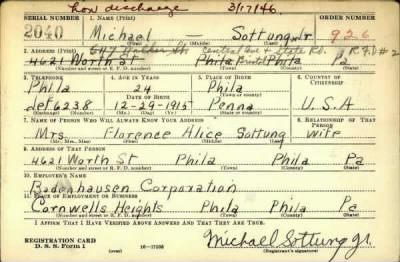 Hon discharge 3/17/46.
SERIAL NUMBER 1. NAME (Print) ORDER NUMBER
2040 Michael — Sottung, Jr 926
(First) (Middle) (Last)
Central Ave + State Rd. R.F.D# 2
2. ADDRESS (Print)
4621 Worth St Phila Phila Pa
(Number and street or R. F. D. number) (Town) (County) (State)
3. TELEPHONE 4. AGE IN YEARS 5. PLACE OF BIRTH 6. COUNTRY OF CITIZENSHIP
Phila 24 Phila
DATE OF BIRTH (Town or county)
def 6238 12-29-1915 Penna U.S.A
(Exchange) (Number) (Mo.) (Day) (Yr.) (State or country)
7. NAME OF PERSON WHO WILL ALWAYS KNOW YOUR ADDRESS 8. RELATIONSHIP OF THAT PERSON
Mrs. Florence Alice Sottung wife
(Mr., Mrs., Miss) (First) (Middle) (Last)
9. ADDRESS OF THAT PERSON
4621 Worth St Phila Phila Pa
(Number and street or R. F. D. number) (Town) (County) (State)
10. EMPLOYER'S NAME
Badenhausen Corporation
11. PLACE OF EMPLOYMENT OR BUSINESS
Cornwells Heights Phila Phila Pa
(Number and street or R. F. D. number) (Town) (County) (State)
I AFFIRM THAT I HAVE VERIFIED ABOVE ANSWERS AND THAT THEY ARE TRUE.
REGISTRATION CARD
D. S. S. Form 1 (over) 16—17105 Michael Sottung Jr.
(Registrant's signature)